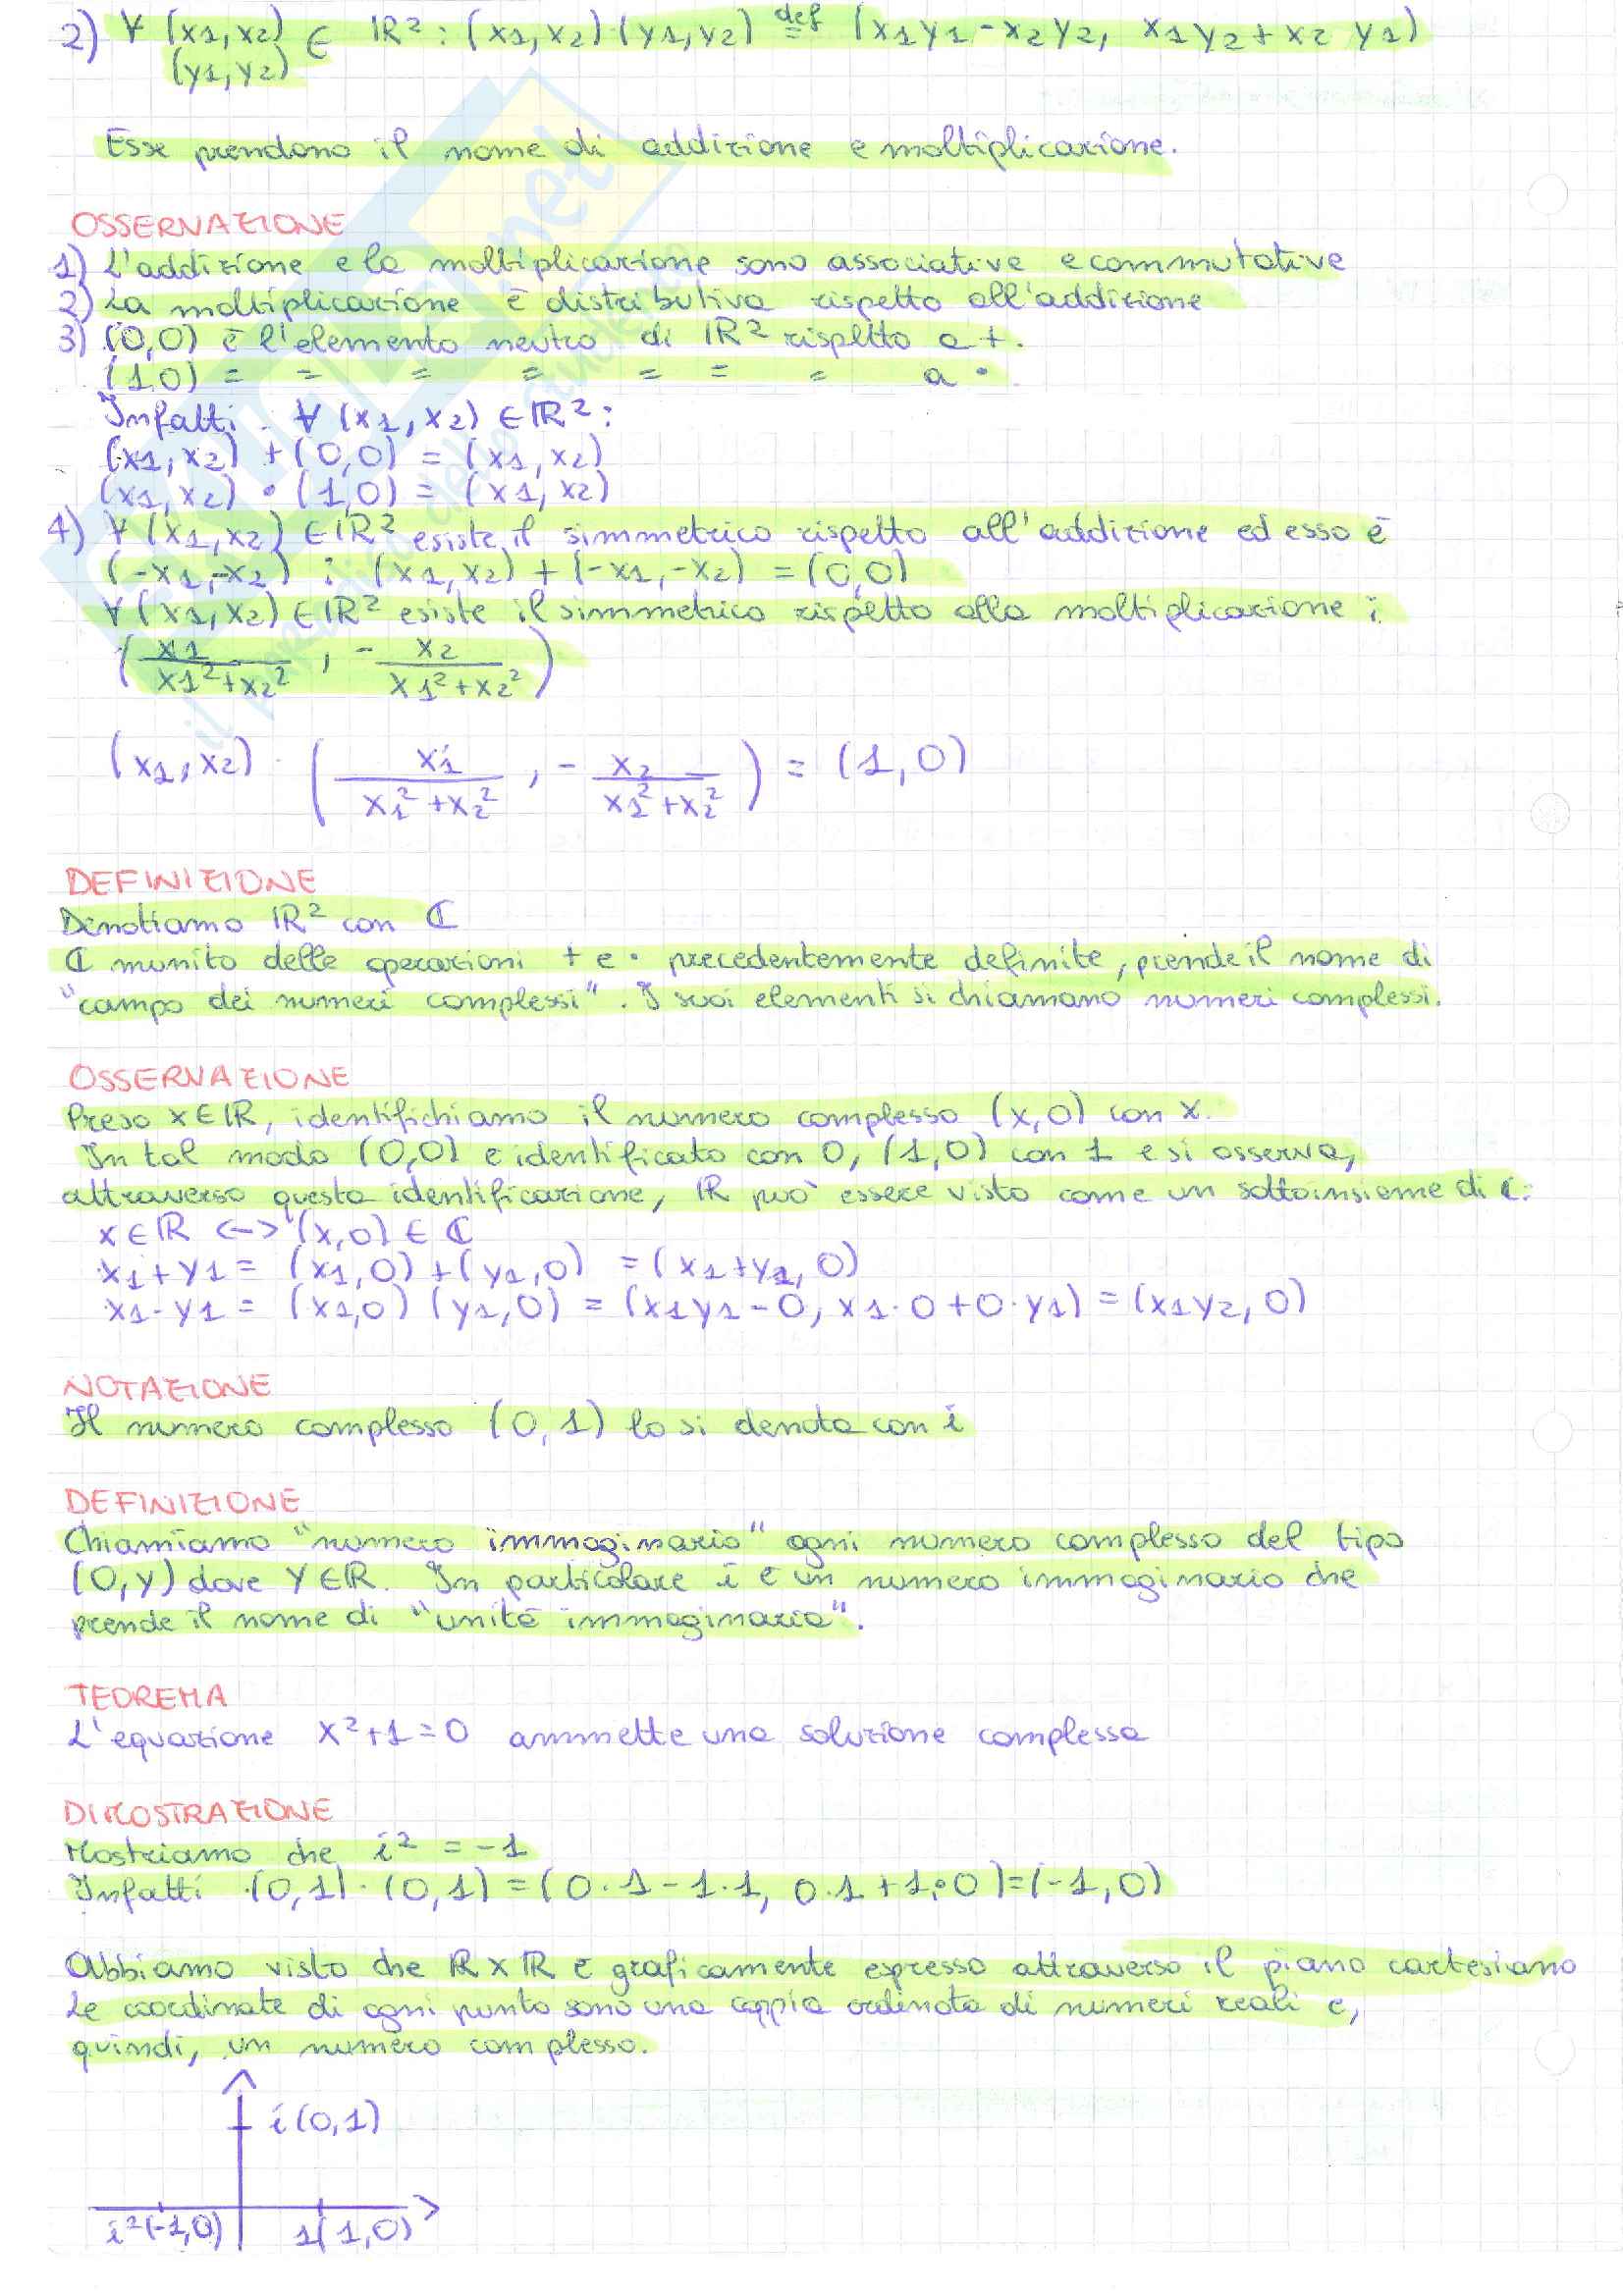 2) ∀ (x1,x2) ∈ IR² : (x1,x2)·(y1,y2) def= (x1y1-x2y2, x1y2+x2 y1)
(y1,y2)
Esse prendono il nome di addizione e moltiplicazione.
OSSERVAZIONE
1) L'addizione e la moltiplicazione sono associative e commutative
2) La moltiplicazione è distributiva rispetto all'addizione
3) (0,0) è l'elemento neutro di IR² rispetto a +.
(1,0) = = = = = = = a •
Infatti: ∀ (x1,x2) ∈ IR²:
(x1,x2) + (0,0) = (x1,x2)
(x1,x2) • (1,0) = (x1,x2)
4) ∀ (x1,x2) ∈ IR² esiste il simmetrico rispetto all'addizione ed esso è
(-x1,-x2) : (x1,x2) + (-x1,-x2) = (0,0)
∀ (x1,x2) ∈ IR² esiste il simmetrico rispetto alla moltiplicazione :
(x1/x1²+x2² , - x2/x1²+x2²)
(x1,x2) · (x1/x1²+x2² , - x2/x1²+x2²) = (1,0)
DEFINIZIONE
Denotiamo IR² con ℂ
ℂ munito delle operazioni + e • precedentemente definite, prende il nome di
"campo dei numeri complessi". I suoi elementi si chiamano numeri complessi.
OSSERVAZIONE
Preso x∈IR, identifichiamo il numero complesso (x,0) con x.
In tal modo (0,0) è identificato con 0, (1,0) con 1 e si osserva,
attraverso questa identificazione, IR può essere visto come un sottoinsieme di ℂ:
x∈IR <-> (x,0) ∈ ℂ
x1+y1 = (x1,0)+(y1,0) = (x1+y1,0)
x1·y1 = (x1,0) (y1,0) = (x1y1-0, x1·0+0·y1) = (x1y2,0)
NOTAZIONE
Il numero complesso (0,1) lo si denota con i
DEFINIZIONE
Chiamiamo "numero immaginario" ogni numero complesso del tipo
(0,y) dove y∈IR. In particolare i è un numero immaginario che
prende il nome di "unità immaginaria".
TEOREMA
L'equazione x²+1=0 ammette una soluzione complessa
DIMOSTRAZIONE
Mostriamo che i² = -1
Infatti (0,1)·(0,1) = (0·1-1·1, 0·1+1·0)=(-1,0)
Abbiamo visto che IR×IR è graficamente espresso attraverso il piano cartesiano
Le coordinate di ogni punto sono una coppia ordinata di numeri reali e,
quindi, un numero complesso.
i(0,1)
i²(-1,0) 1(1,0)